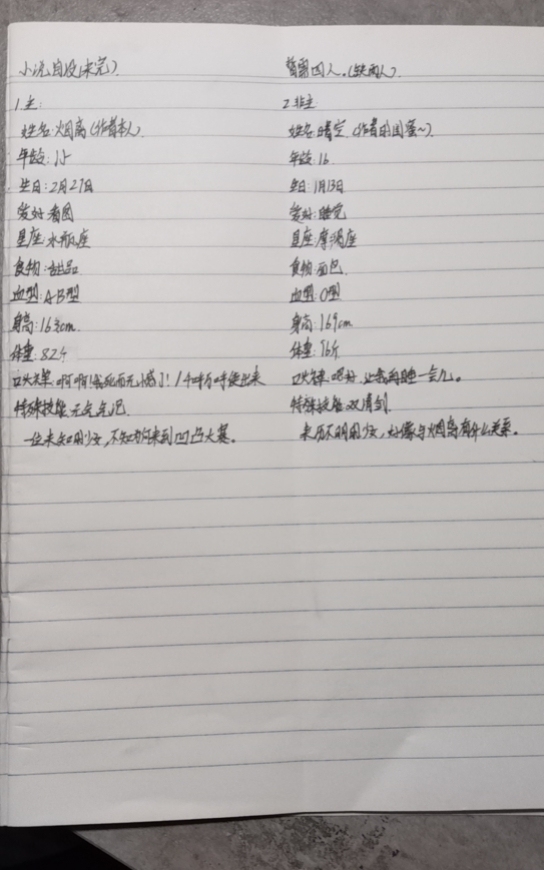 小说自设(未完).
暂留四人.(缺两人).
1.主:
姓名:烟离(作者本人)
年龄:15
生日:2月27日
爱好:看图
星座:水瓶座
食物:甜品
血型:AB型
身高:163cm.
体重:82斤
口头禅:啊啊!我死而无憾了!
特殊技能:元气气记.
一位未知的少女,不知为何来到凹凸大赛。
2.非主
姓名:晴空(作者的闺蜜~).
年龄:16
生日:1月13日
爱好:睡觉
星座:摩羯座
食物:面包
血型:O型
身高:169cm
体重:76斤
口头禅:吧好,让我再睡一会儿。
特殊技能:双清剑.
来历不明的少女,好像与烟离有什么关系。